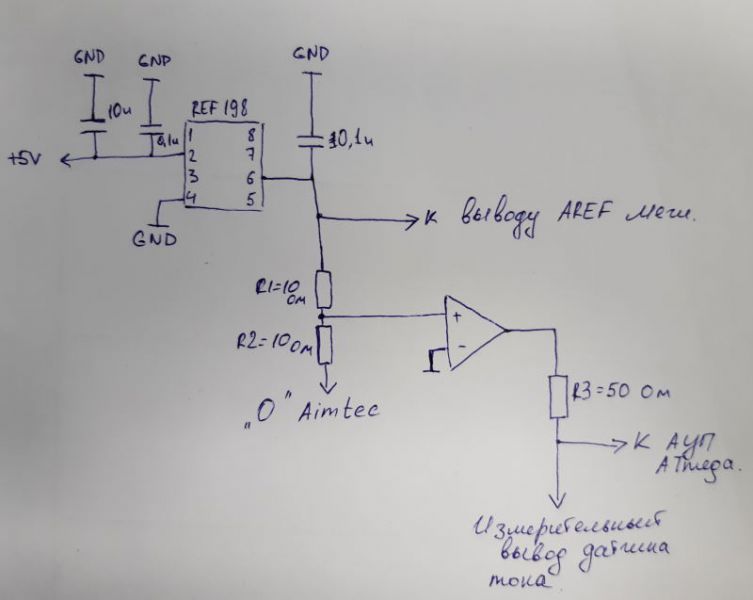 GND
GND
GND
10u
0,1u
REF 198
10,1u
1 8
2 7
3 6
4 5
+5V
GND
К выводу AREF меги.
R1=10
ом
R2=10 ом
+
-
"0" Aimtec
R3=50 Ом
К АЦП
ATmega.
Измерительный
вывод датчика
тока